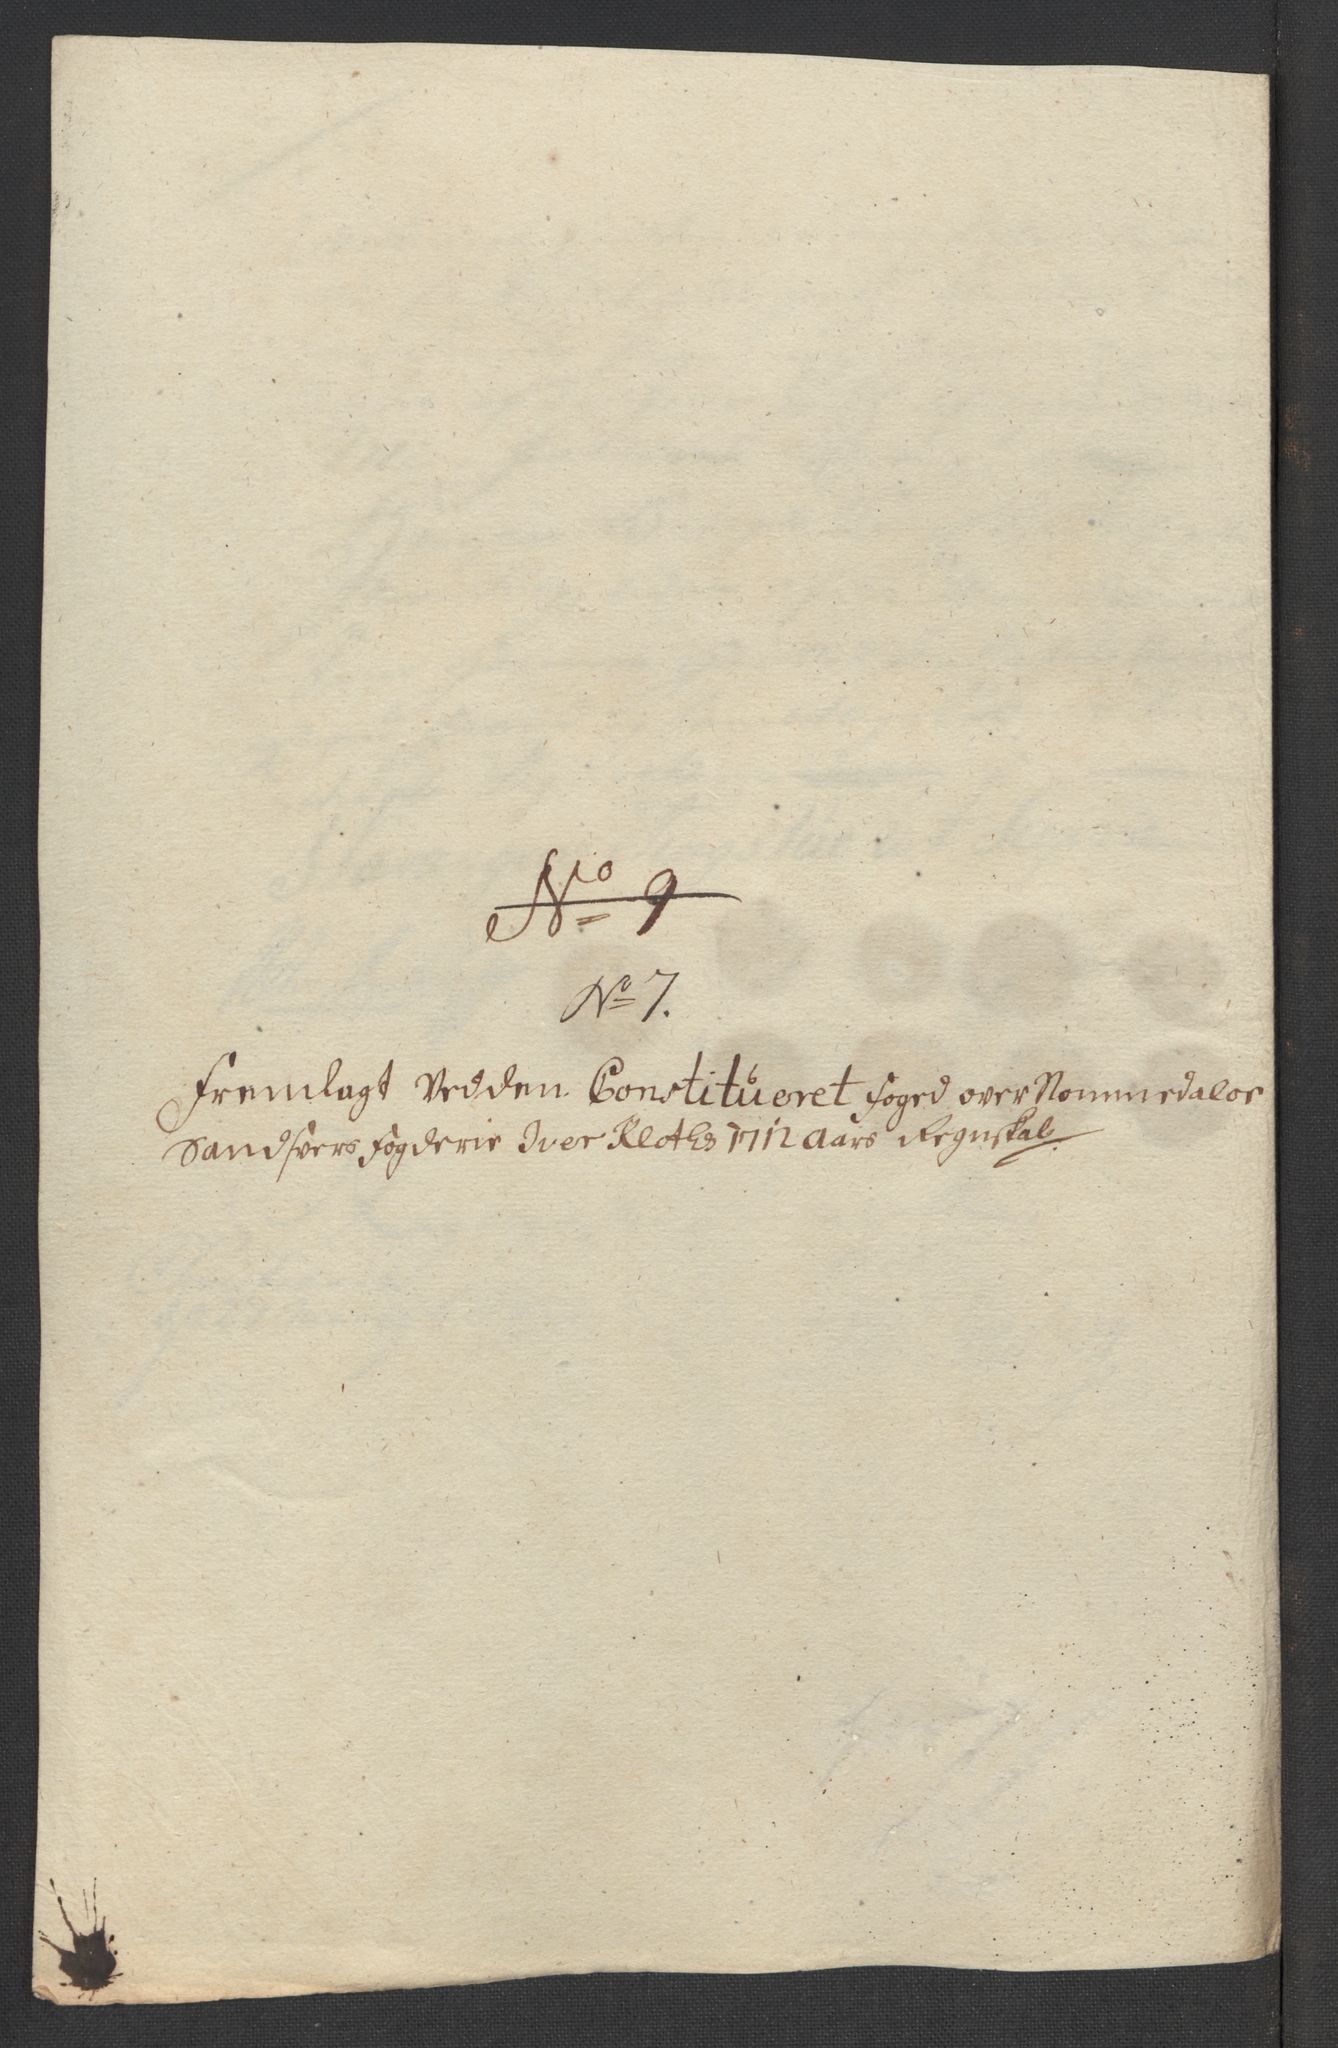 No 9
No 7.
Fremlagt Ved den Constitueret foged over Nommedals oc
Sandsvers fogderie Iver Kloths 1712 Aars Regnskab